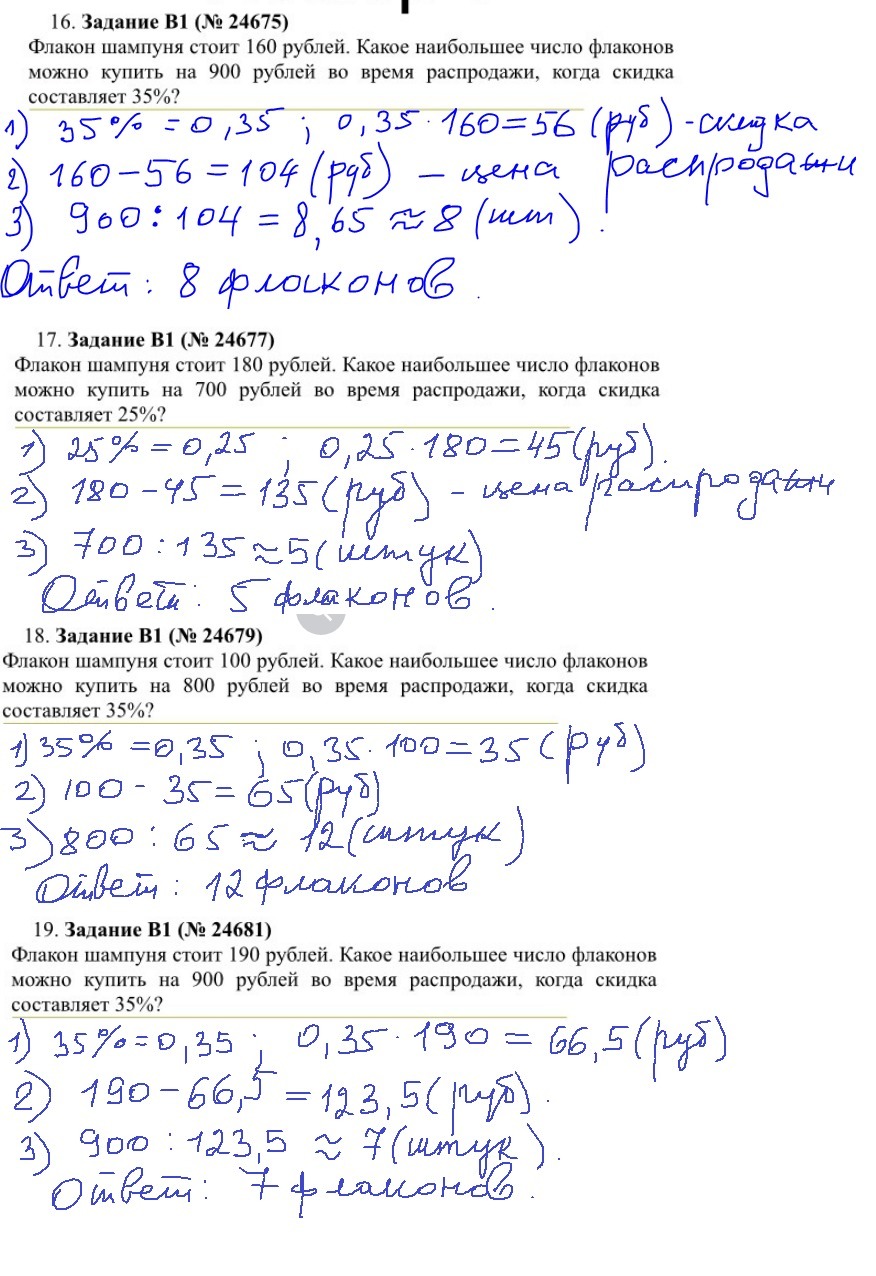 16. Задание B1 (№ 24675)
Флакон шампуня стоит 160 рублей. Какое наибольшее число флаконов
можно купить на 900 рублей во время распродажи, когда скидка
составляет 35%?
1) 35% = 0,35 ; 0,35 · 160 = 56 (руб) - скидка
2) 160 - 56 = 104 (руб) - цена распродажи
3) 900 : 104 = 8,65 ≈ 8 (шт) .
Ответ : 8 флаконов .
17. Задание B1 (№ 24677)
Флакон шампуня стоит 180 рублей. Какое наибольшее число флаконов
можно купить на 700 рублей во время распродажи, когда скидка
составляет 25%?
1) 25% = 0,25 ; 0,25 · 180 = 45 (руб).
2) 180 - 45 = 135 (руб) - цена распродажи
3) 700 : 135 ≈ 5 (штук)
Ответ : 5 флаконов .
18. Задание B1 (№ 24679)
Флакон шампуня стоит 100 рублей. Какое наибольшее число флаконов
можно купить на 800 рублей во время распродажи, когда скидка
составляет 35%?
1) 35% = 0,35 ; 0,35 · 100 = 35 (руб)
2) 100 - 35 = 65 (руб)
3) 800 : 65 ≈ 12 (штук)
Ответ : 12 флаконов
19. Задание B1 (№ 24681)
Флакон шампуня стоит 190 рублей. Какое наибольшее число флаконов
можно купить на 900 рублей во время распродажи, когда скидка
составляет 35%?
1) 35% = 0,35 ; 0,35 · 190 = 66,5 (руб)
2) 190 - 66,5 = 123,5 (руб) .
3) 900 : 123,5 ≈ 7 (штук) .
Ответ : 7 флаконов .